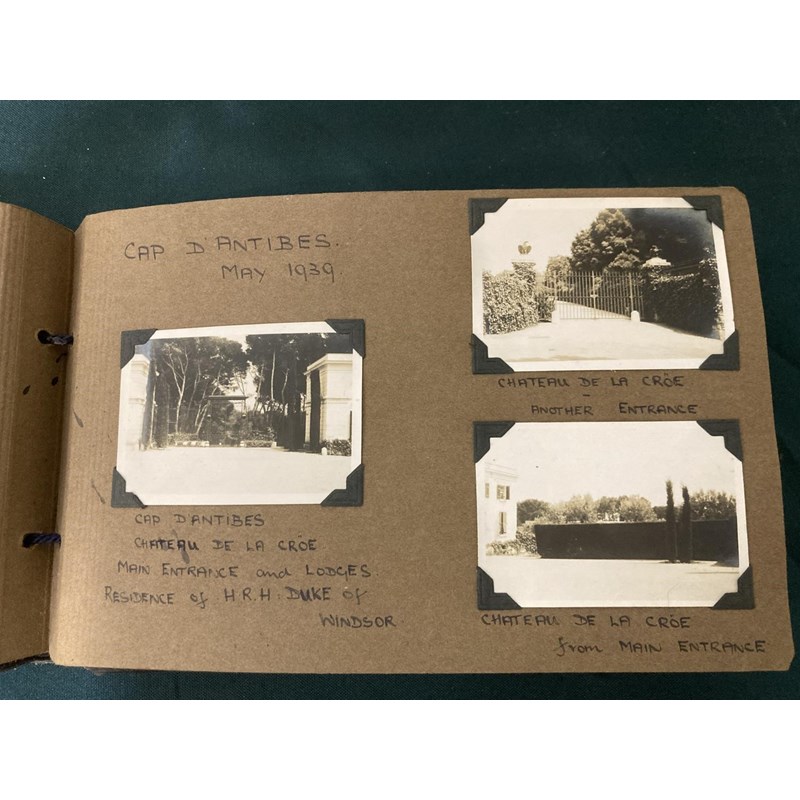 CAP D'ANTIBES.
MAY 1939
CAP D'ANTIBES
CHATEAU DE LA CRÖE
MAIN ENTRANCE and LODGES
RESIDENCE of H.R.H. DUKE of
WINDSOR
CHATEAU DE LA CRÖE
-
ANOTHER ENTRANCE
CHATEAU DE LA CRÖE
from MAIN ENTRANCE